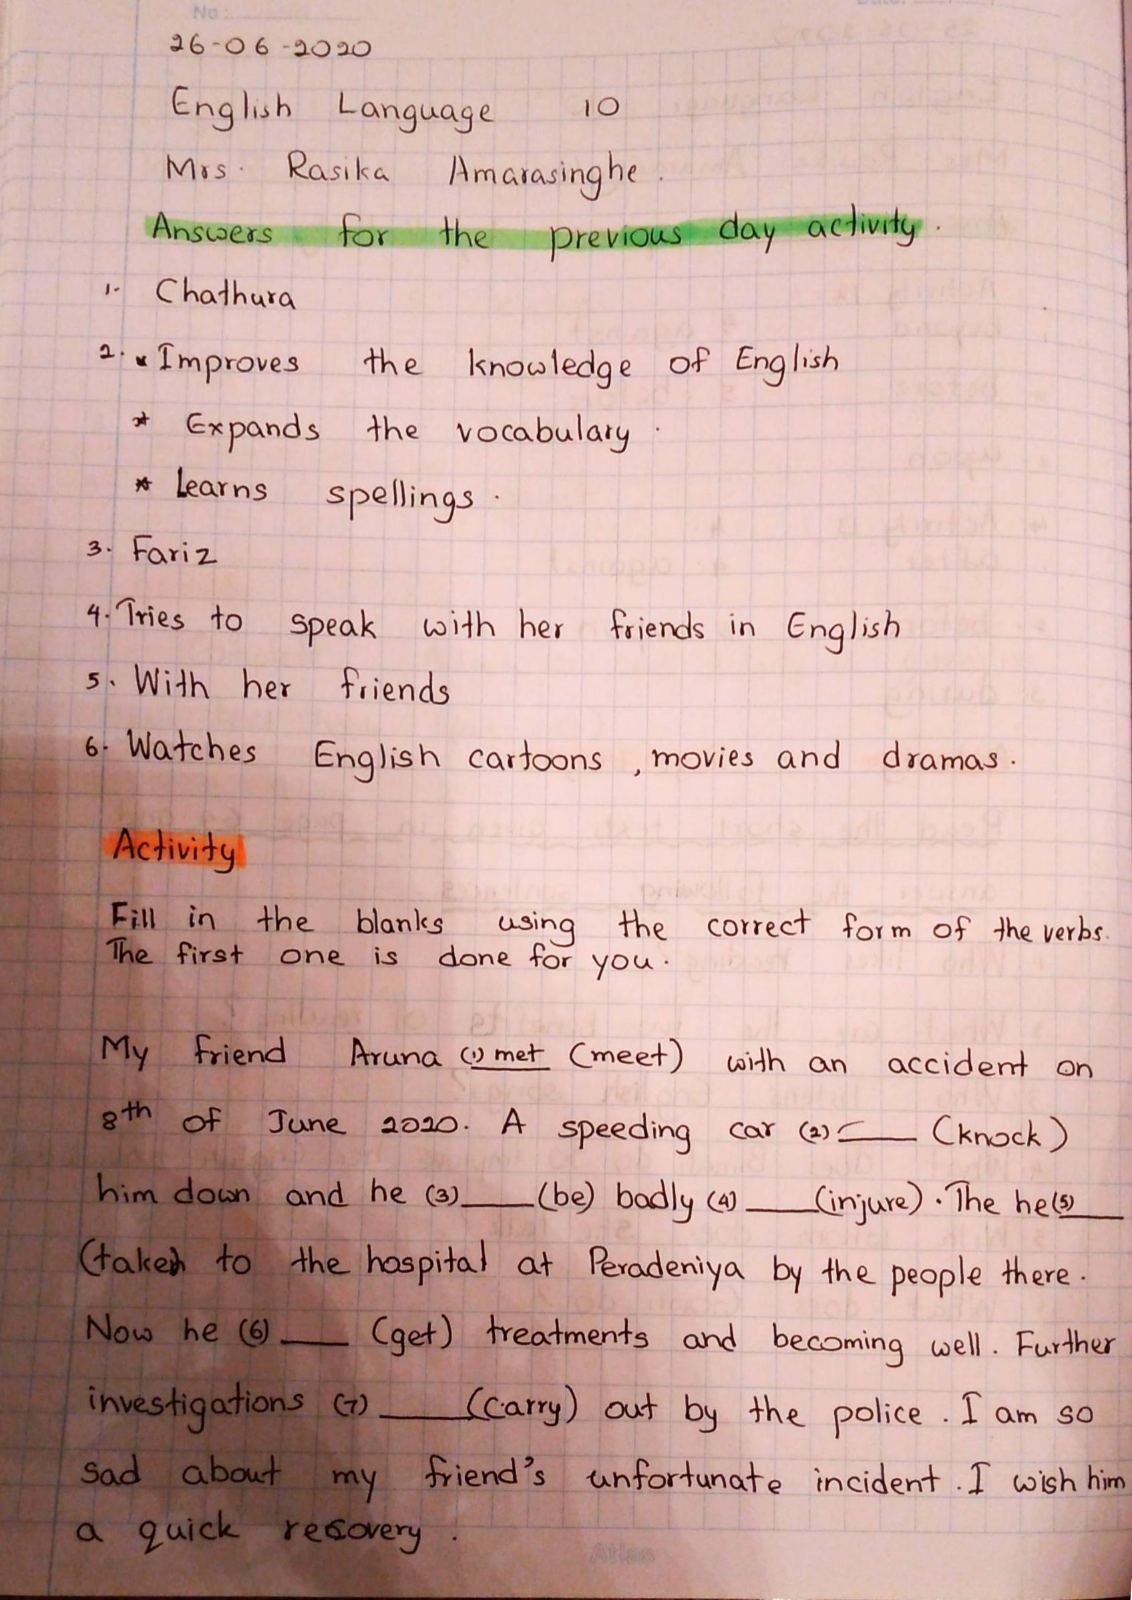 No:
Date:
26-06-2020
English Language 10
Mrs. Rasika Amarasinghe.
Answers for the previous day activity.
1. Chathura
2. * Improves the knowledge of English
* Expands the vocabulary.
* Learns spellings.
3. Fariz
4. Tries to speak with her friends in English
5. With her friends
6. Watches English cartoons, movies and dramas.
Activity
Fill in the blanks using the correct form of the verbs.
The first one is done for you.
My friend Aruna (1) met (meet) with an accident on
8th of June 2020. A speeding car (2) ____ (knock)
him down and he (3) ____ (be) badly (4) ____ (injure). The he (5) ____
(taken) to the hospital at Peradeniya by the people there.
Now he (6) ____ (get) treatments and becoming well. Further
investigations (7) ____ (carry) out by the police. I am so
sad about my friend's unfortunate incident. I wish him
a quick recovery.
Atlas